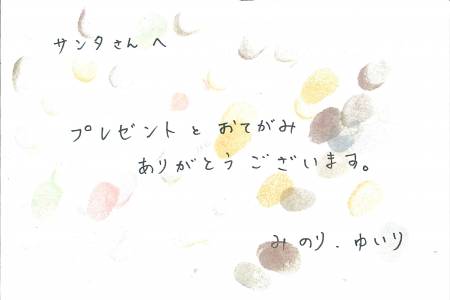 サンタさんへ
プレゼントとおてがみ
ありがとうございます。
みのり.ゆいり